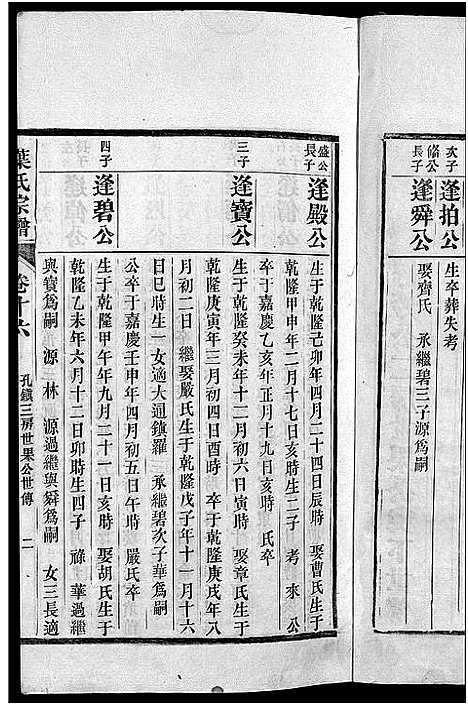 次子
逢拍公
生卒葬失考
脩公長子
逢舜公
娶齊氏 承繼碧三子源爲嗣
盛公長子
逢嚴公
生于乾隆己卯年四月二十四日辰時 娶曹氏生于
乾隆甲申年二月十七日亥時生二子 考 來 公
卒于嘉慶乙亥年正月十九日亥時 氏卒
三子
逢寶公
生于乾隆癸未年十二月初六日寅時 娶章氏生于
乾隆庚寅年三月初四日酉時 卒于乾隆庚戌年八
月初二日 繼娶嚴氏生于乾隆戊子年十一月十六
日巳時生一女適大通鎮羅 承繼碧次子華爲嗣
公卒于嘉慶壬申年四月初五日午時 嚴氏卒
四子
逢碧公
生于乾隆甲午年九月二十一日亥時 娶胡氏生于
乾隆乙未年六月十二日卯時生四子 祿 華過繼
與寶爲嗣 源 林 源過繼與舜爲嗣 女三長適
葉氏宗譜
卷十六
孔鎮三房世果公世傳
二